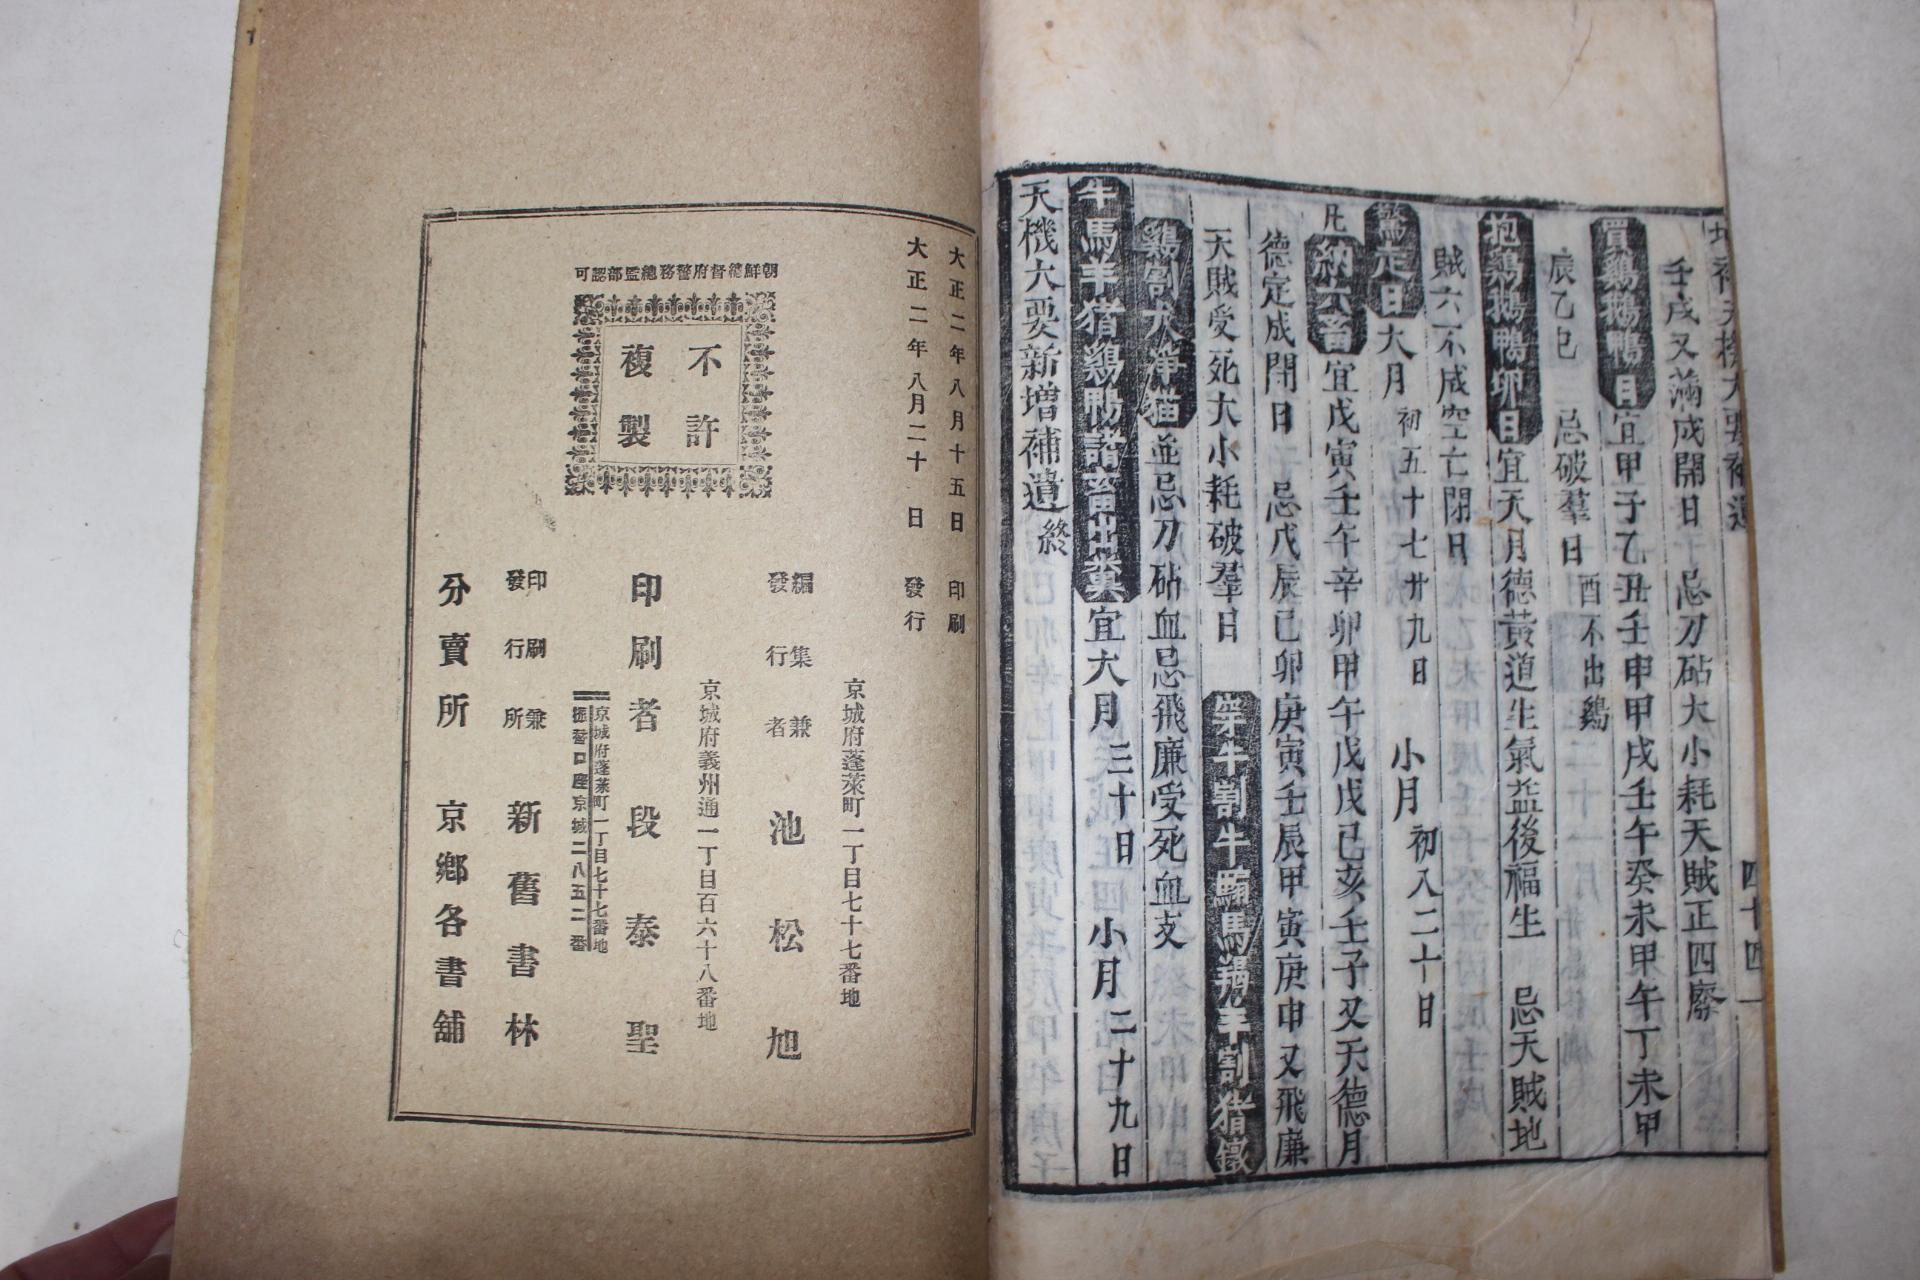 壬戌又滿成開日 忌刀砧大小耗天賊正四廢
買鷄鵝鴨日宜甲子乙丑壬申甲戌壬午癸未甲午丁未甲
辰乙巳 忌破羣日 酉不出鷄
抱鷄鵝鴨卵日宜天月德黃道生氣益後福生 忌天賊地
賊六不成空亡閉日
驚走日大月初五十七廿九日 小月初八二十日
凡納六畜宜戊寅壬午辛卯甲午戊戌己亥壬子又天德月
德定成開日 忌戊辰己卯庚寅壬辰甲寅庚申又飛廉
天賊受死大小耗破羣日 穿牛割牛騸馬羯羊割猪鐓
鷄割犬淨猫並忌刀砧血忌飛廉受死血支
牛馬羊猪鷄鴨諸畜出糞宜大月三十日 小月二十九日
天機大要新增補遺終
四十四
大正二年八月十五日 印刷
大正二年八月二十日 發行
朝鮮總督府警務總監部認可
不許
複製
京城府蓬萊町一丁目七十七番地
編集兼
發行者 池松旭
京城府義州通一丁目百六十八番地
印刷者 段泰聖
京城府蓬萊町一丁目七十七番地
振替口座京城二八五二番
印刷兼
發行所 新舊書林
分賣所 京鄕各書舖